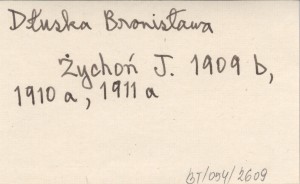 Dłuska Bronisława
Żychoń J. 1909 b,
1910 a, 1911 a
BT/054/2609